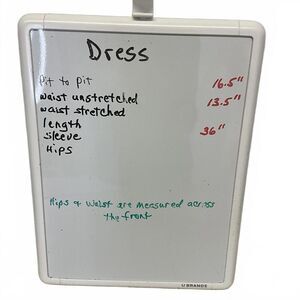 Dress
Pit to pit 16.5"
waist unstretched 13.5"
waist stretched
length 36"
sleeve
Hips
Hips & Waist are measured across
the front
U BRANDS